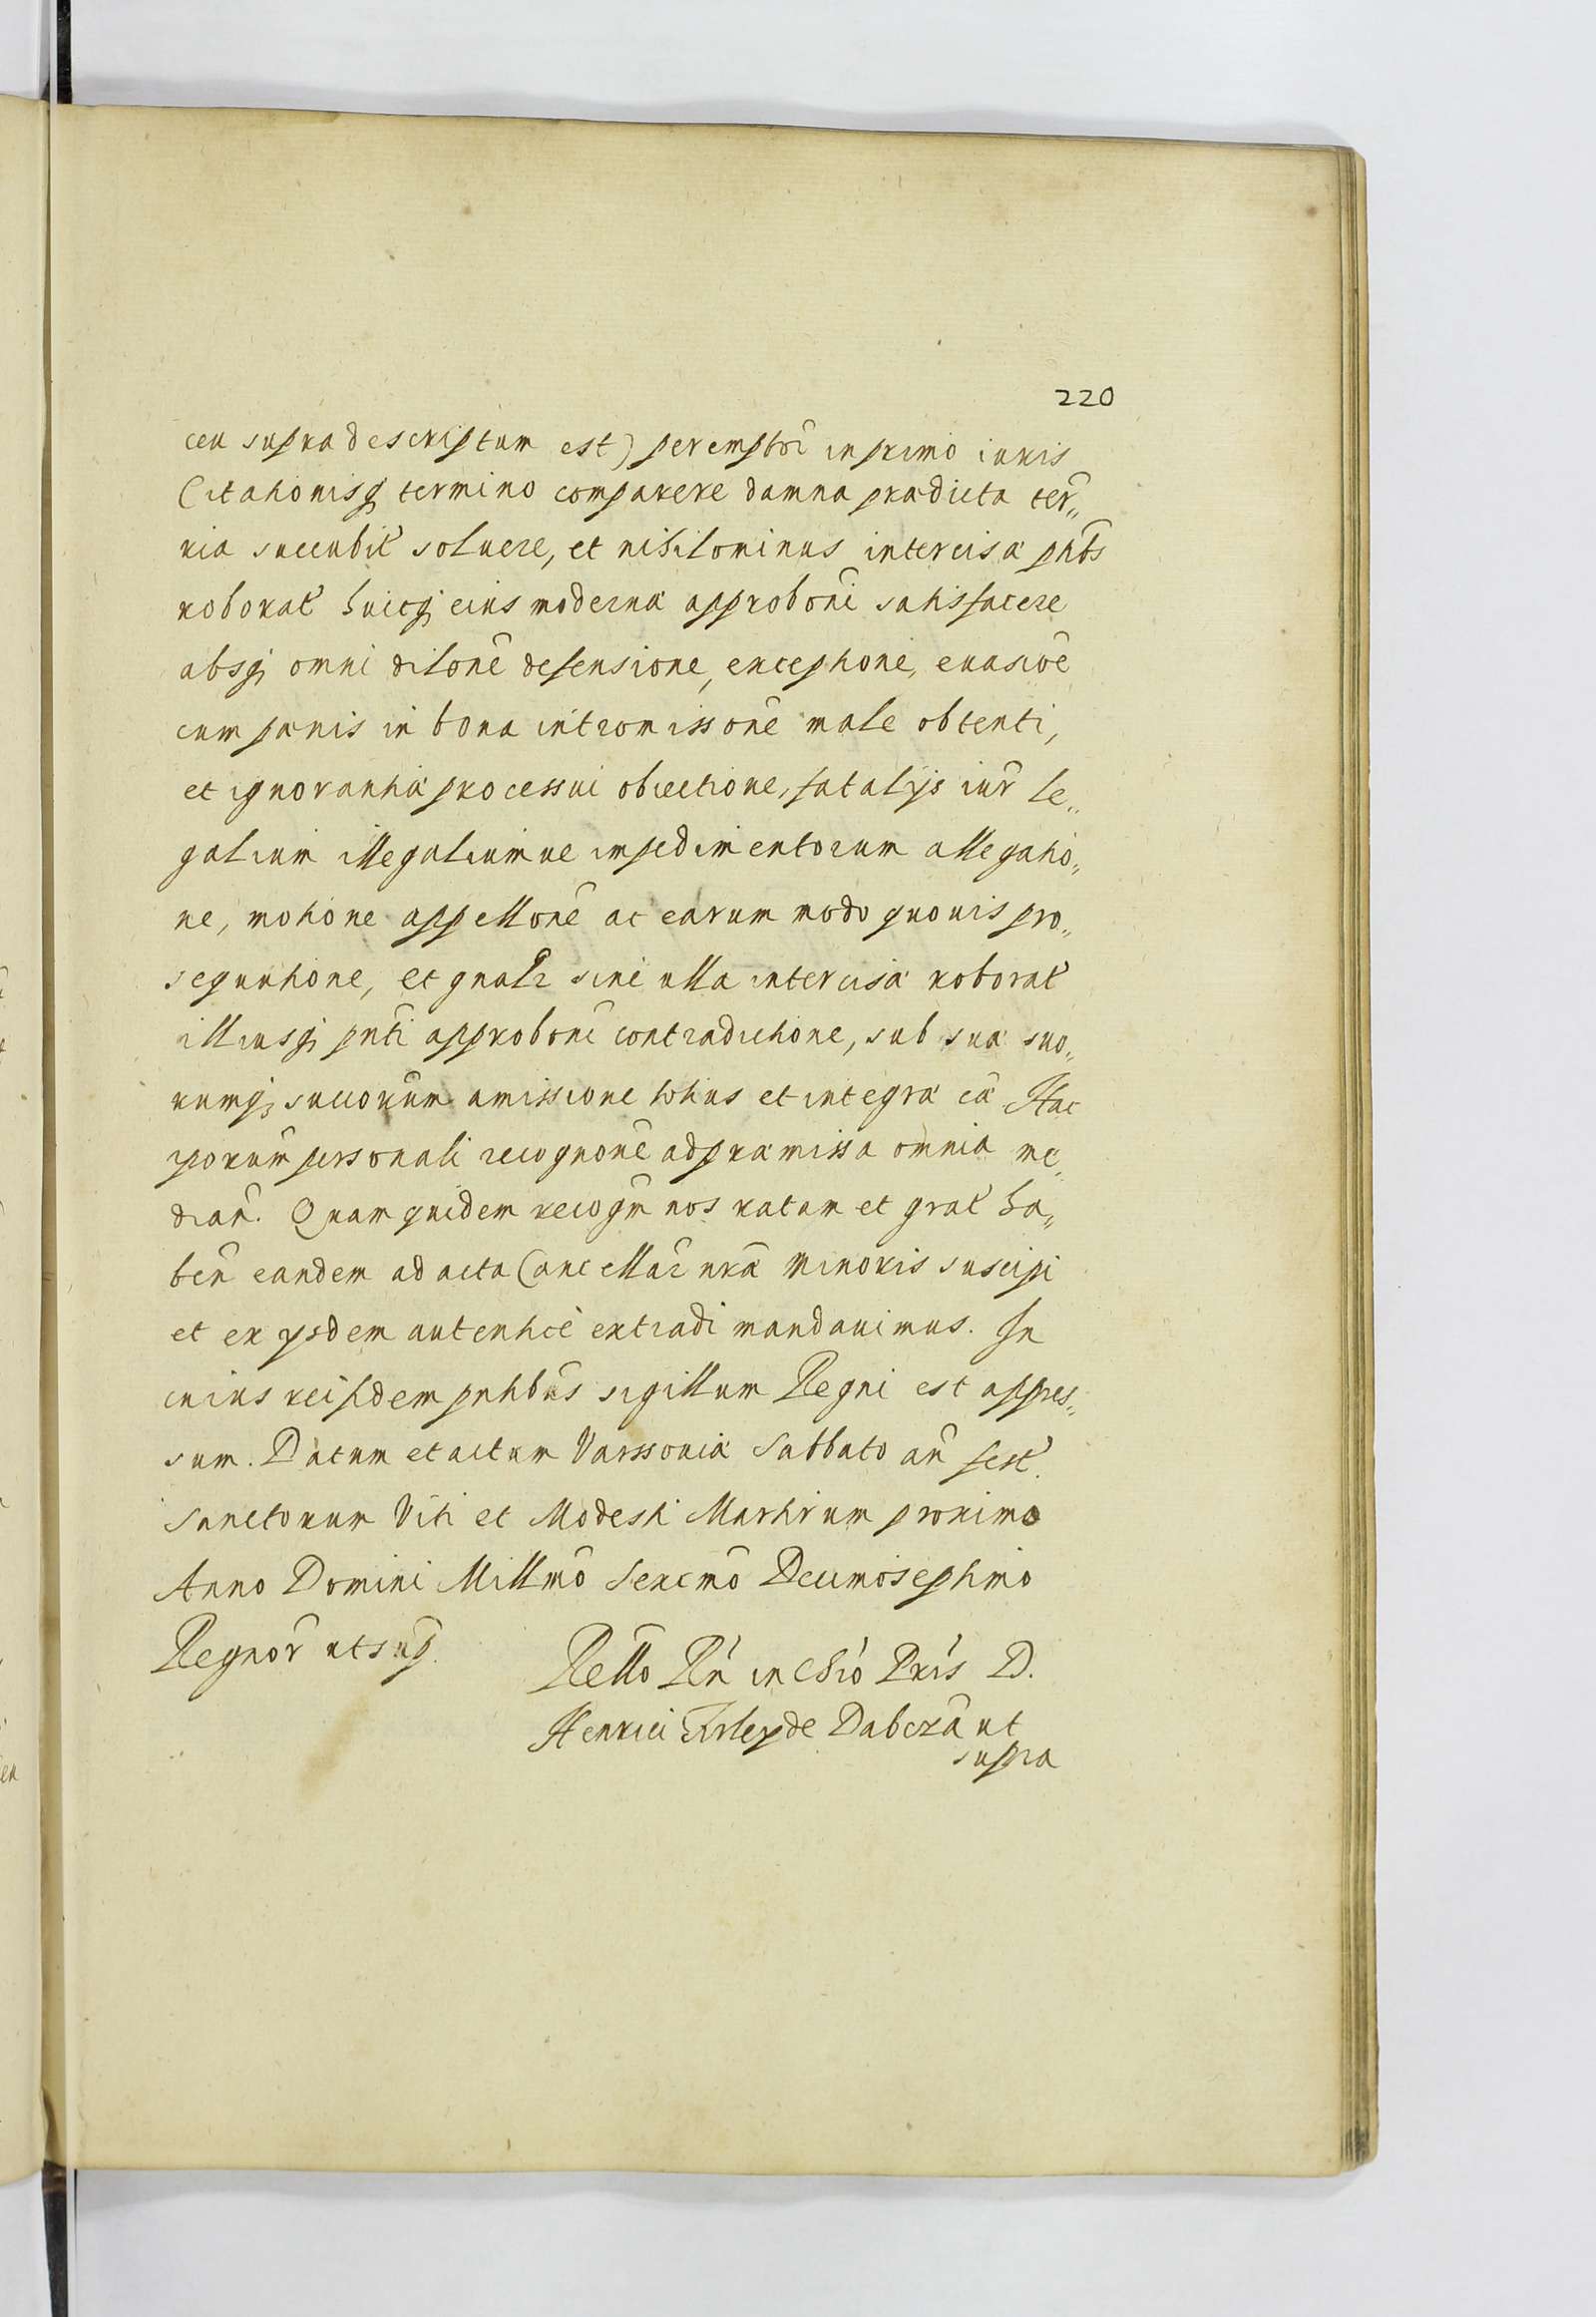 220
ceu supradescriptum est) peremptor̃ in primo iuris
Citationisq; termino comparere damna prædicta ter„
ria succubit̃ soluere, et nihilominus intercisæ pñtbs
roborat̃ huicq; eius modernæ approboni satisfacere
absq; omni dilone defensione, exceptione, euasioe
cum pænis in bona intromissone male obtenti,
et ignorantiæ processui obiectione, fatalÿs iur̃ le„
galium illegaliumue impedimentorum allegatio„
ne, motione appellone ac earum modo quouis pro„
sequutione, et gnalr sine ulla intercisæ roborat̃
illiusq; pnti approboni contradictione, sub suæ suo„
rumq; succorum amissione totius et integræ cæ Hac
ipsorum personali recognone ad præmissa omnia me„
dian̄. Quam quidem recogn̄ nos ratam et grat̃ ha„
ben̄ eandem ad acta Cancellar̃ nræ Minoris suscipi
et ex ÿsdem autentice extradi mandauimus. In
cuius rei fidem pntibus sigillum Regni est appres„
sum. Datum et actum Varssouiæ Sabbato an̄ fest̃
Sanctorum Viti et Modesti Martirum proximo
Anno Domini Millmo Sexcmo Decimoseptimo
Regnor̃ ut sup̃.
Rello Rn̄ in Chro Pris D.
Henrici Firley de Dabroua ut
supra